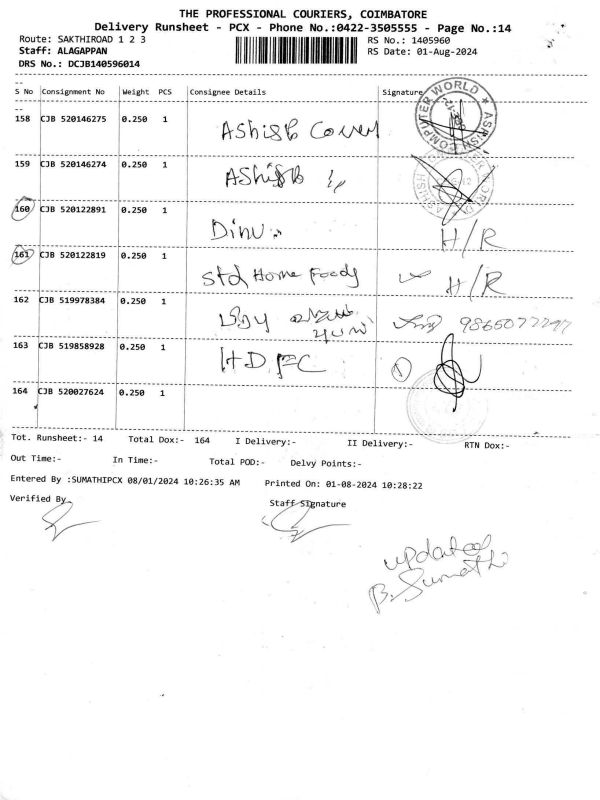 THE PROFESSIONAL COURIERS, COIMBATORE
Delivery Runsheet - PCX - Phone No.:0422-3505555 - Page No.:14
Route: SAKTHIROAD 1 2 3 RS No.: 1405960
Staff: ALAGAPPAN RS Date: 01-Aug-2024
DRS No.: DCJB140596014
S No Consignment No Weight PCS Consignee Details Signature
158 CJB 520146275 0.250 1 Ashish
ASHISH COMPUTER WORLD
159 CJB 520146274 0.250 1 AShish
160 CJB 520122891 0.250 1 Dinu H/R
161 CJB 520122819 0.250 1 Std Home Foods H/R
162 CJB 519978384 0.250 1
163 CJB 519858928 0.250 1 HDFC 1
164 CJB 520027624 0.250 1
Tot. Runsheet:- 14 Total Dox:- 164 I Delivery:- II Delivery:- RTN Dox:-
Out Time:- In Time:- Total POD:- Delvy Points:-
Entered By :SUMATHIPCX 08/01/2024 10:26:35 AM Printed On: 01-08-2024 10:28:22
Verified By Staff Signature
updated
B. Sumathi